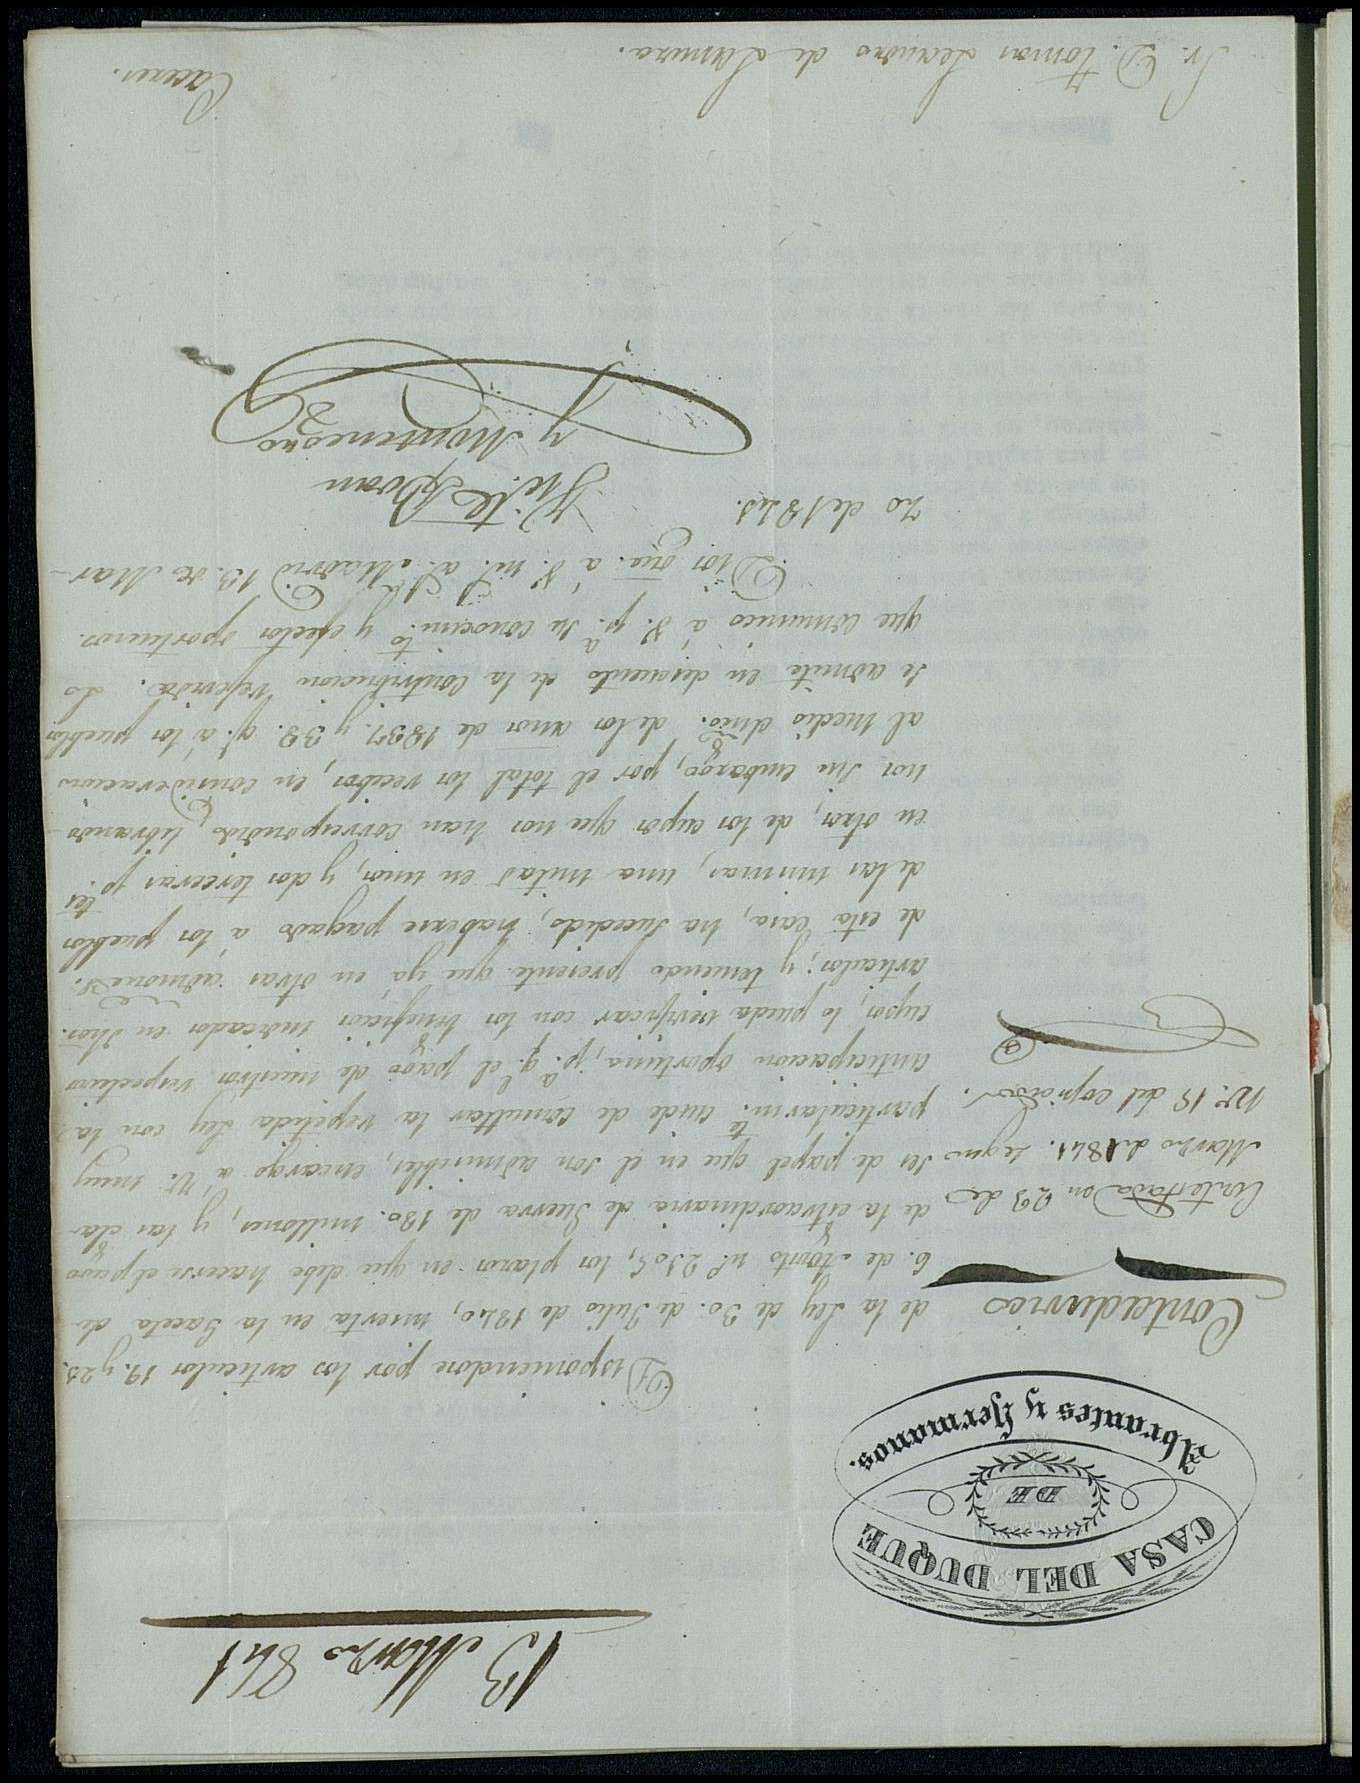 13 Marzo 841
CASA DEL DUQUE
DE
Abrantes y Hermanos.
Contaduria
Contestada en 29 de
Marzo de 1841. segun
nº. 15 del copiador.
Disponiendose por los articulos 19. y 25.
de la Ley de 30. de Julio de 1840, inserta en la Gaceta de
6. de Agosto nº. 2105, los plazos en que debe hacerse el pago
de la extraordinaria de Guerra de 180. millones, y las cla-
ses de papel que en él son admisibles, encargo á V. muy
particularmte. cuide de consultar la repetida Ley con la
anticipacion oportuna, pª. qe. el pago de nuestros respectivos
cupos, lo pueda verificar con los beneficios indicados en dhos.
articulos; y teniendo presente que yá en otras admones.
de esta Casa, ha sucedido, haberse pagado á los pueblos
de las mismas, una mitad en unos, y dos terceras ptes.
en otros, de los cupos que nos han correspondido, librando-
nos sin embargo, por el total los recibos, en consideracion
al medio dieo. de los años de 1837. y 38. q. á los pueblos
se admite en descuento de la contribucion referida. Lo
que comunico á V. pª. su conocimto. y efectos oportunos.
Dios gue. á V. ms. as. Madrid 13. de Mar-
zo de 1841.
y Montenegro
Sr. D. Tomas Leandro de Lamora.
Caceres.